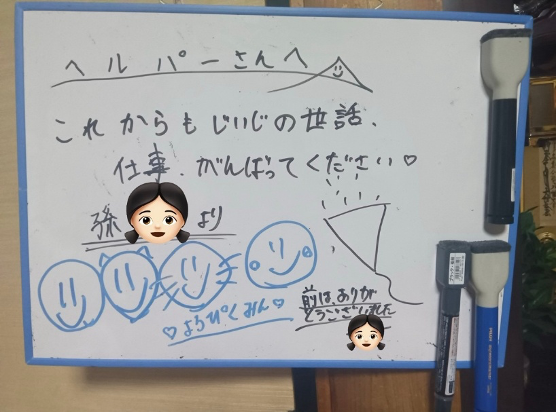 ヘルパーさんへ
これからもじいじの世話、
仕事、がんばってください♡
孫 より
♡よろぴくみん♡
前は、ありが
とうございました